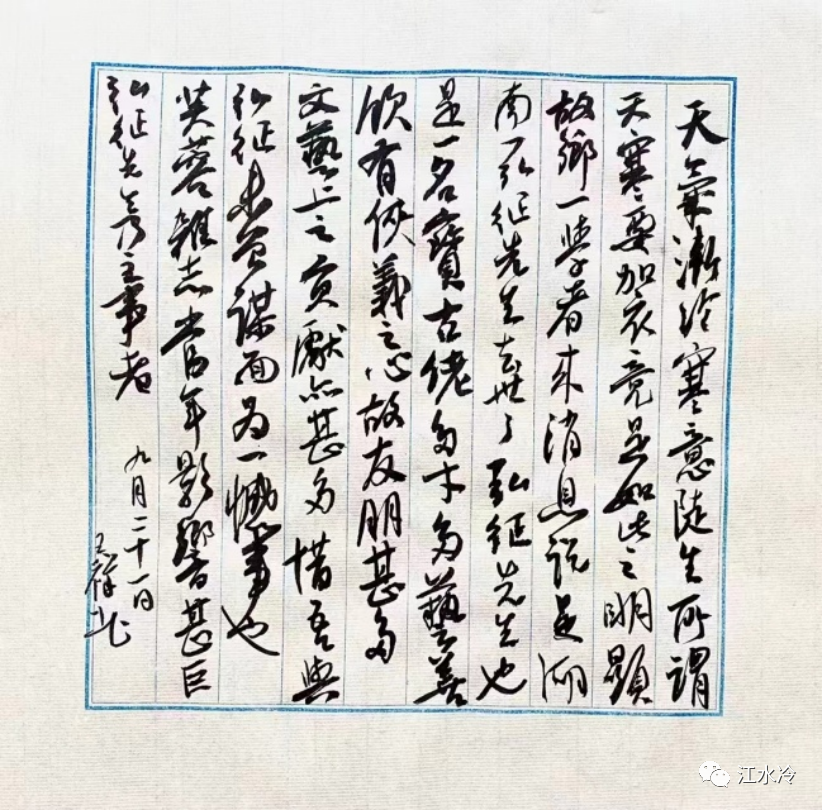 天氣漸冷寒意陡生所謂
天寒要加衣竟是如此之明顯
故鄉一學者來消息說是湖
南弘征先生去世了弘征先生也
是一名寶古佬多才多藝善
飲有俠義之心故友朋甚多
文藝上之貢獻亦甚多惜吾與
弘征未曾謀面為一憾事也
芙蓉雜志當年影響甚巨
弘征先生乃主事者
九月二十一日
江水冷